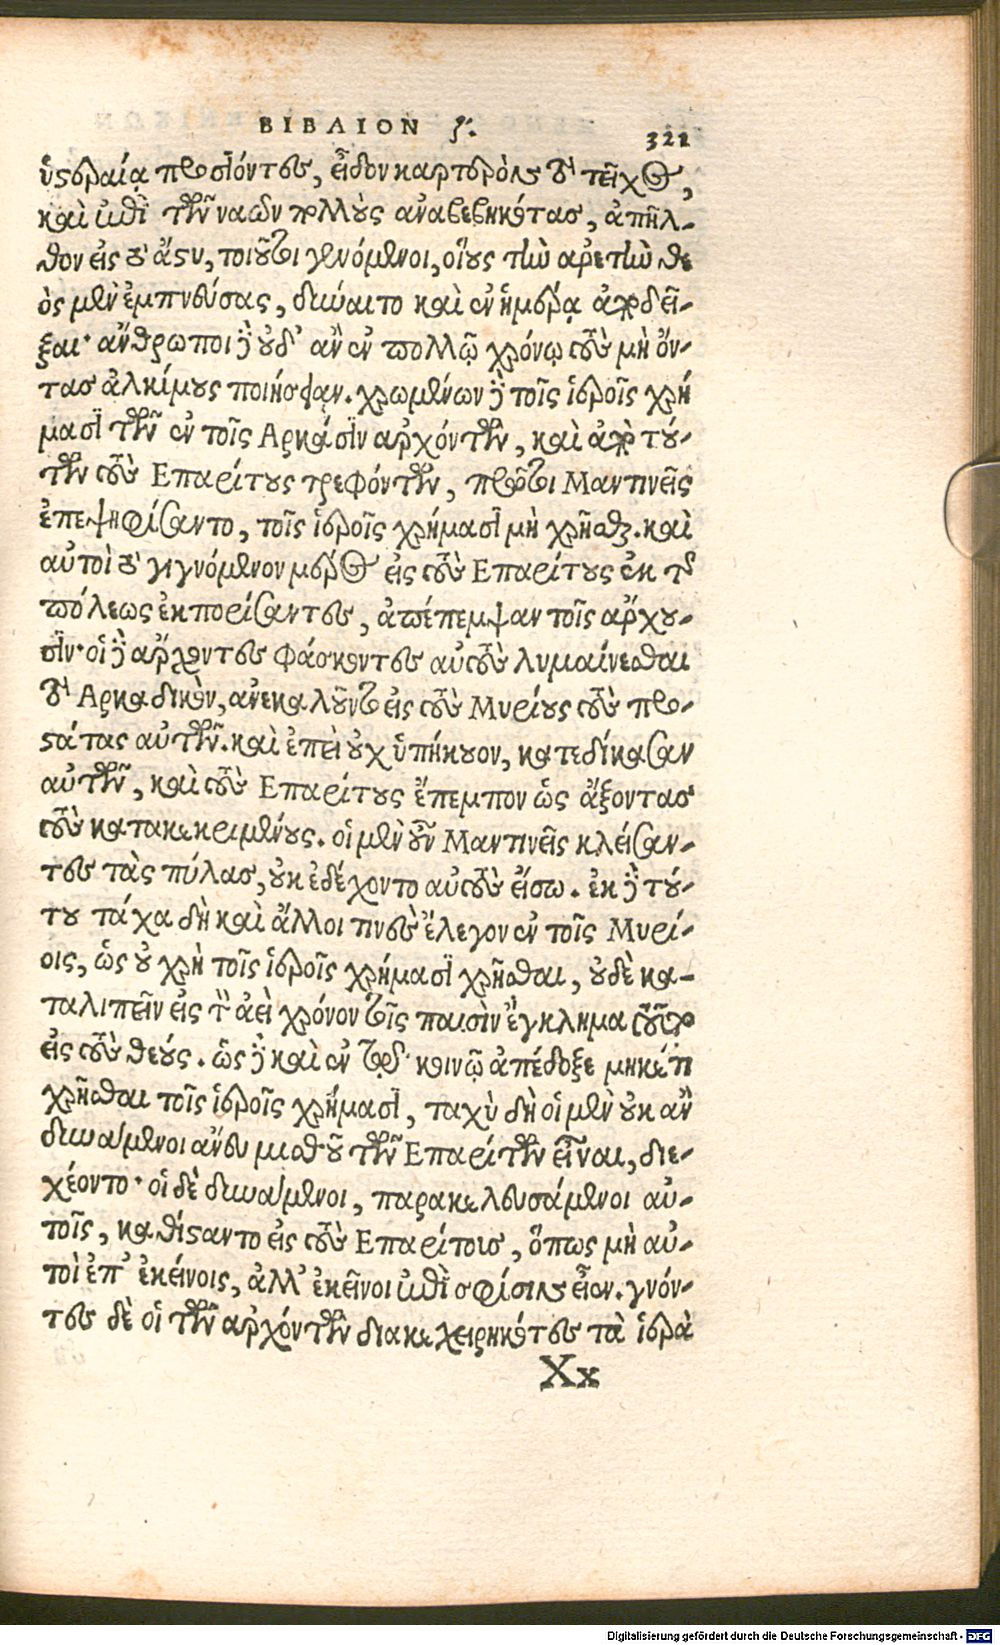 ΒΙΒΛΙΟΝ ζ΄. 321
ὑστεραίᾳ προσϊόντες, εἶδον καρτερὸν τὸ τεῖχος,
καὶ ἐπὶ τῶν ναῶν πολλοὺς ἀναβεβηκότας, ἀπῆλ-
θον εἰς τὸ ἄστυ, τοιοῦτοι γενόμενοι, οἵους τὴν ἀρετὴν θε
ὸς μὲν ἐμπνεύσας, δύναιτο καὶ ἐν ἡμέρᾳ ἀποδεῖ-
ξαι· ἄνθρωποι δὲ οὐδ' ἂν ἐν πολλῷ χρόνῳ τοὺς μὴ ὄν-
τας ἀλκίμους ποιήσειαν. χρωμένων δὲ τοῖς ἱεροῖς χρή
μασϊ τῶν ἐν τοῖς Αρκάσϊν ἀρχόντων, καὶ ἀπὸ τού-
των τοὺς Επαρίτους τρεφόντων, πρῶτοι Μαντινεῖς
ἐπεψηφίσαντο, τοῖς ἱεροῖς χρήμασϊ μὴ χρῆσθαι. καὶ
αὐτοὶ τὸ γιγνόμενον μέρος εἰς τοὺς Επαρίτους ἐκ τῆς
πόλεως ἐκπορίσαντες, ἀπέπεμψαν τοῖς ἄρχου-
σϊν· οἱ δὲ ἄρχοντες φάσκοντες αὐτοὺς λυμαίνεσθαι
τὸ Αρκαδικὸν, ἀνεκαλοῦντο εἰς τοὺς Μυρίους τοὺς προ-
στάτας αὐτῶν. καὶ ἐπεὶ οὐχ ὑπήκουον, κατεδίκασαν
αὐτῶν, καὶ τοὺς Επαρίτους ἔπεμπον ὡς ἄξοντας
τοὺς κατακεκριμένους. οἱ μὲν οὖν Μαντινεῖς κλείσαν-
τες τὰς πύλας, οὐκ ἐδέχοντο αὐτοὺς εἴσω. ἐκ δὲ τού-
του τάχα δὴ καὶ ἄλλοι τινὲς ἔλεγον ἐν τοῖς Μυρί-
οις, ὡς οὐ χρὴ τοῖς ἱεροῖς χρήμασϊ χρῆσθαι, οὐδὲ κα-
ταλιπεῖν εἰς τὸν ἀεὶ χρόνον τοῖς παισὶν ἔγκλημα τοῦτο
εἰς τοὺς θεούς. ὡς δὲ καὶ ἐν τῷ κοινῷ ἀπέδοξε μηκέτι
χρῆσθαι τοῖς ἱεροῖς χρήμασϊ, ταχὺ δὴ οἱ μὲν οὐκ ἂν
δυνάμενοι ἄνευ μισθοῦ τῶν Επαρίτων εἶναι, διε-
χέοντο· οἱ δὲ δυνάμενοι, παρακελευσάμενοι αὐ-
τοῖς, καθίσταντο εἰς τοὺς Επαρίτοις, ὅπως μὴ αὐ-
τοὶ ἐπ' ἐκείνοις, ἀλλ' ἐκεῖνοι ἐπὶ σφίσιν εἶεν. γνόν-
τες δὲ οἱ τῶν ἀρχόντων διακεχειρηκότες τὰ ἱερὰ
Xx
Digitalisierung gefördert durch die Deutsche Forschungsgemeinschaft - DFG